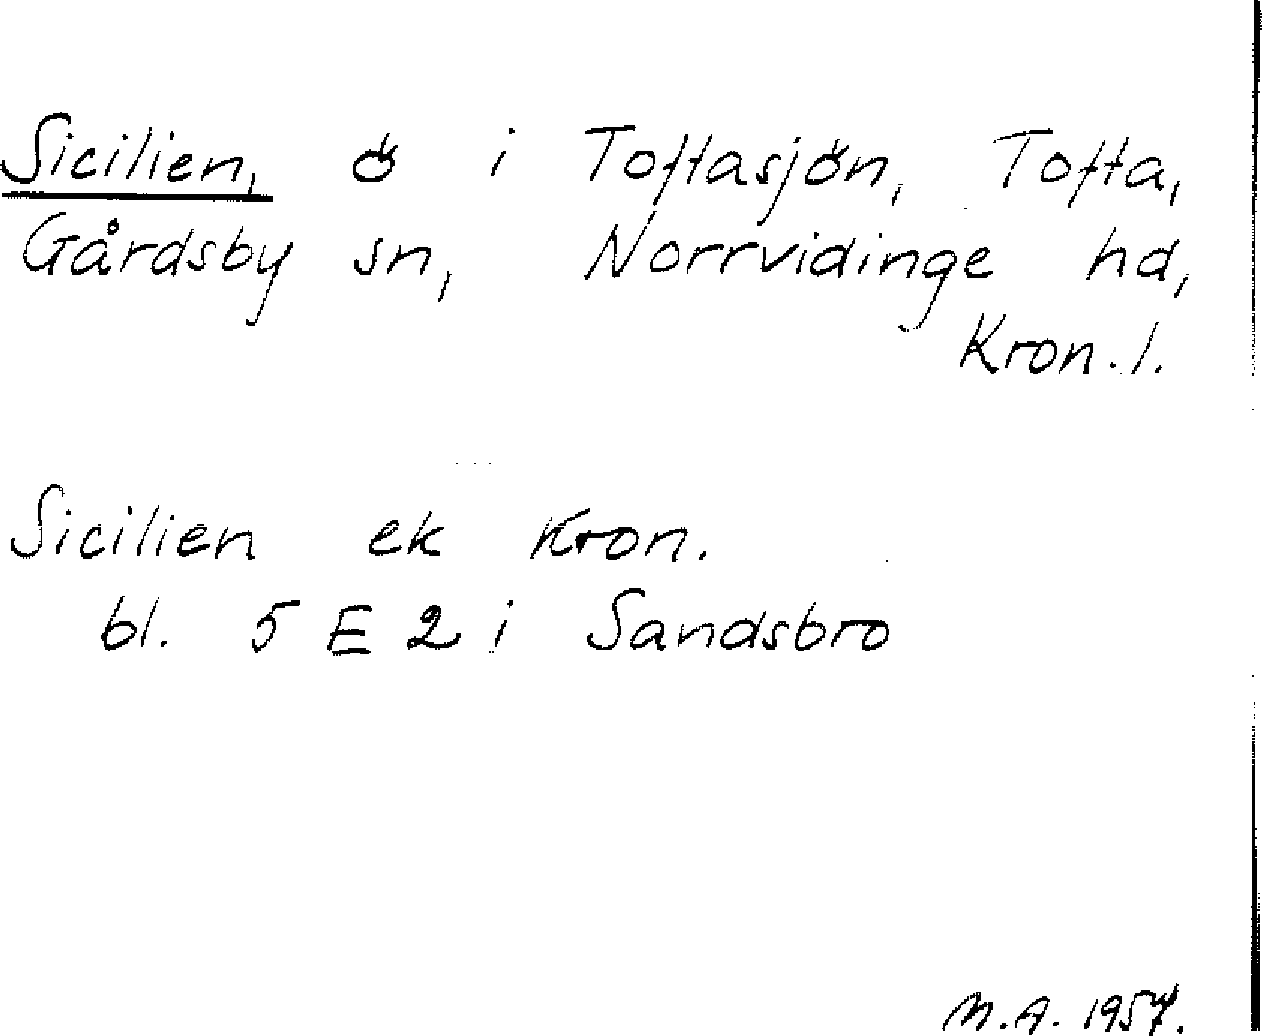 Sicilien, ö i Toftasjön, Tofta,
Gårdsby sn, Norrvidinge hd,
Kron. l.
Sicilien ek Kron.
bl. 5 E 2 i Sandsbro
M.A. 1957.